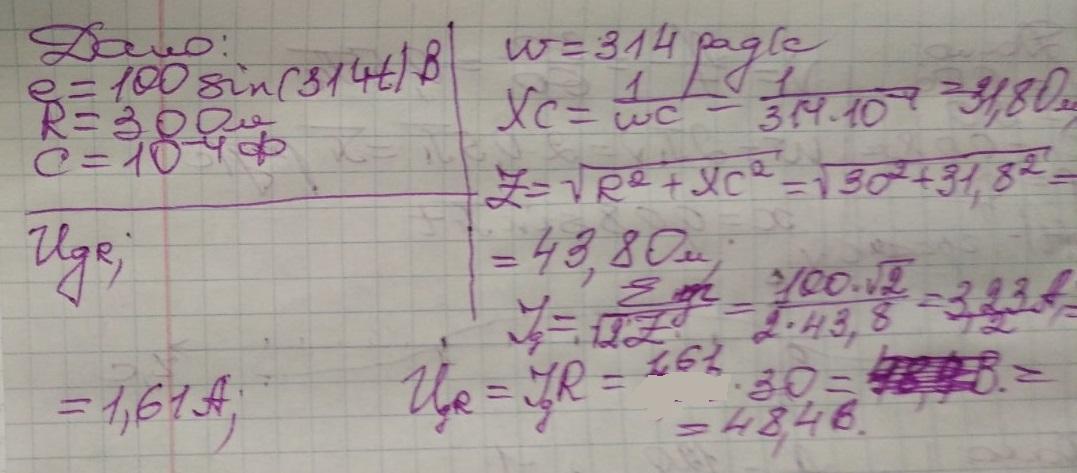 Дано:
e = 100 sin(314t) В
R = 30 Ом
C = 10⁻⁴ Ф
UдR;
w = 314 рад/с
XC = 1/wC = 1/314·10⁻⁴ = 31,8 Ом,
Z = √R² + XC² = √30² + 31,8² =
= 43,8 Ом;
Iд = Em/√2Z = 100·√2/2·43,8 = 3,23/2 А =
= 1,61 А;
UдR = IдR = 1,61·30 = В. =
= 48,4 В.